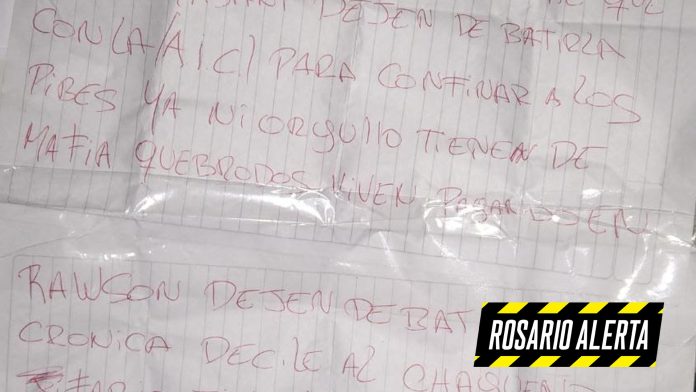 DEJEN DE BATIRLA
CON LA (A.I.C) PARA CONFINAR A LOS
PIBES YA NI ORGULLO TIENEN DE
MAFIA QUEBRODOS VIVEN
RAWSON DEJEN DE BAT
CRONICA DECILE AL
ROSARIO ALERTA